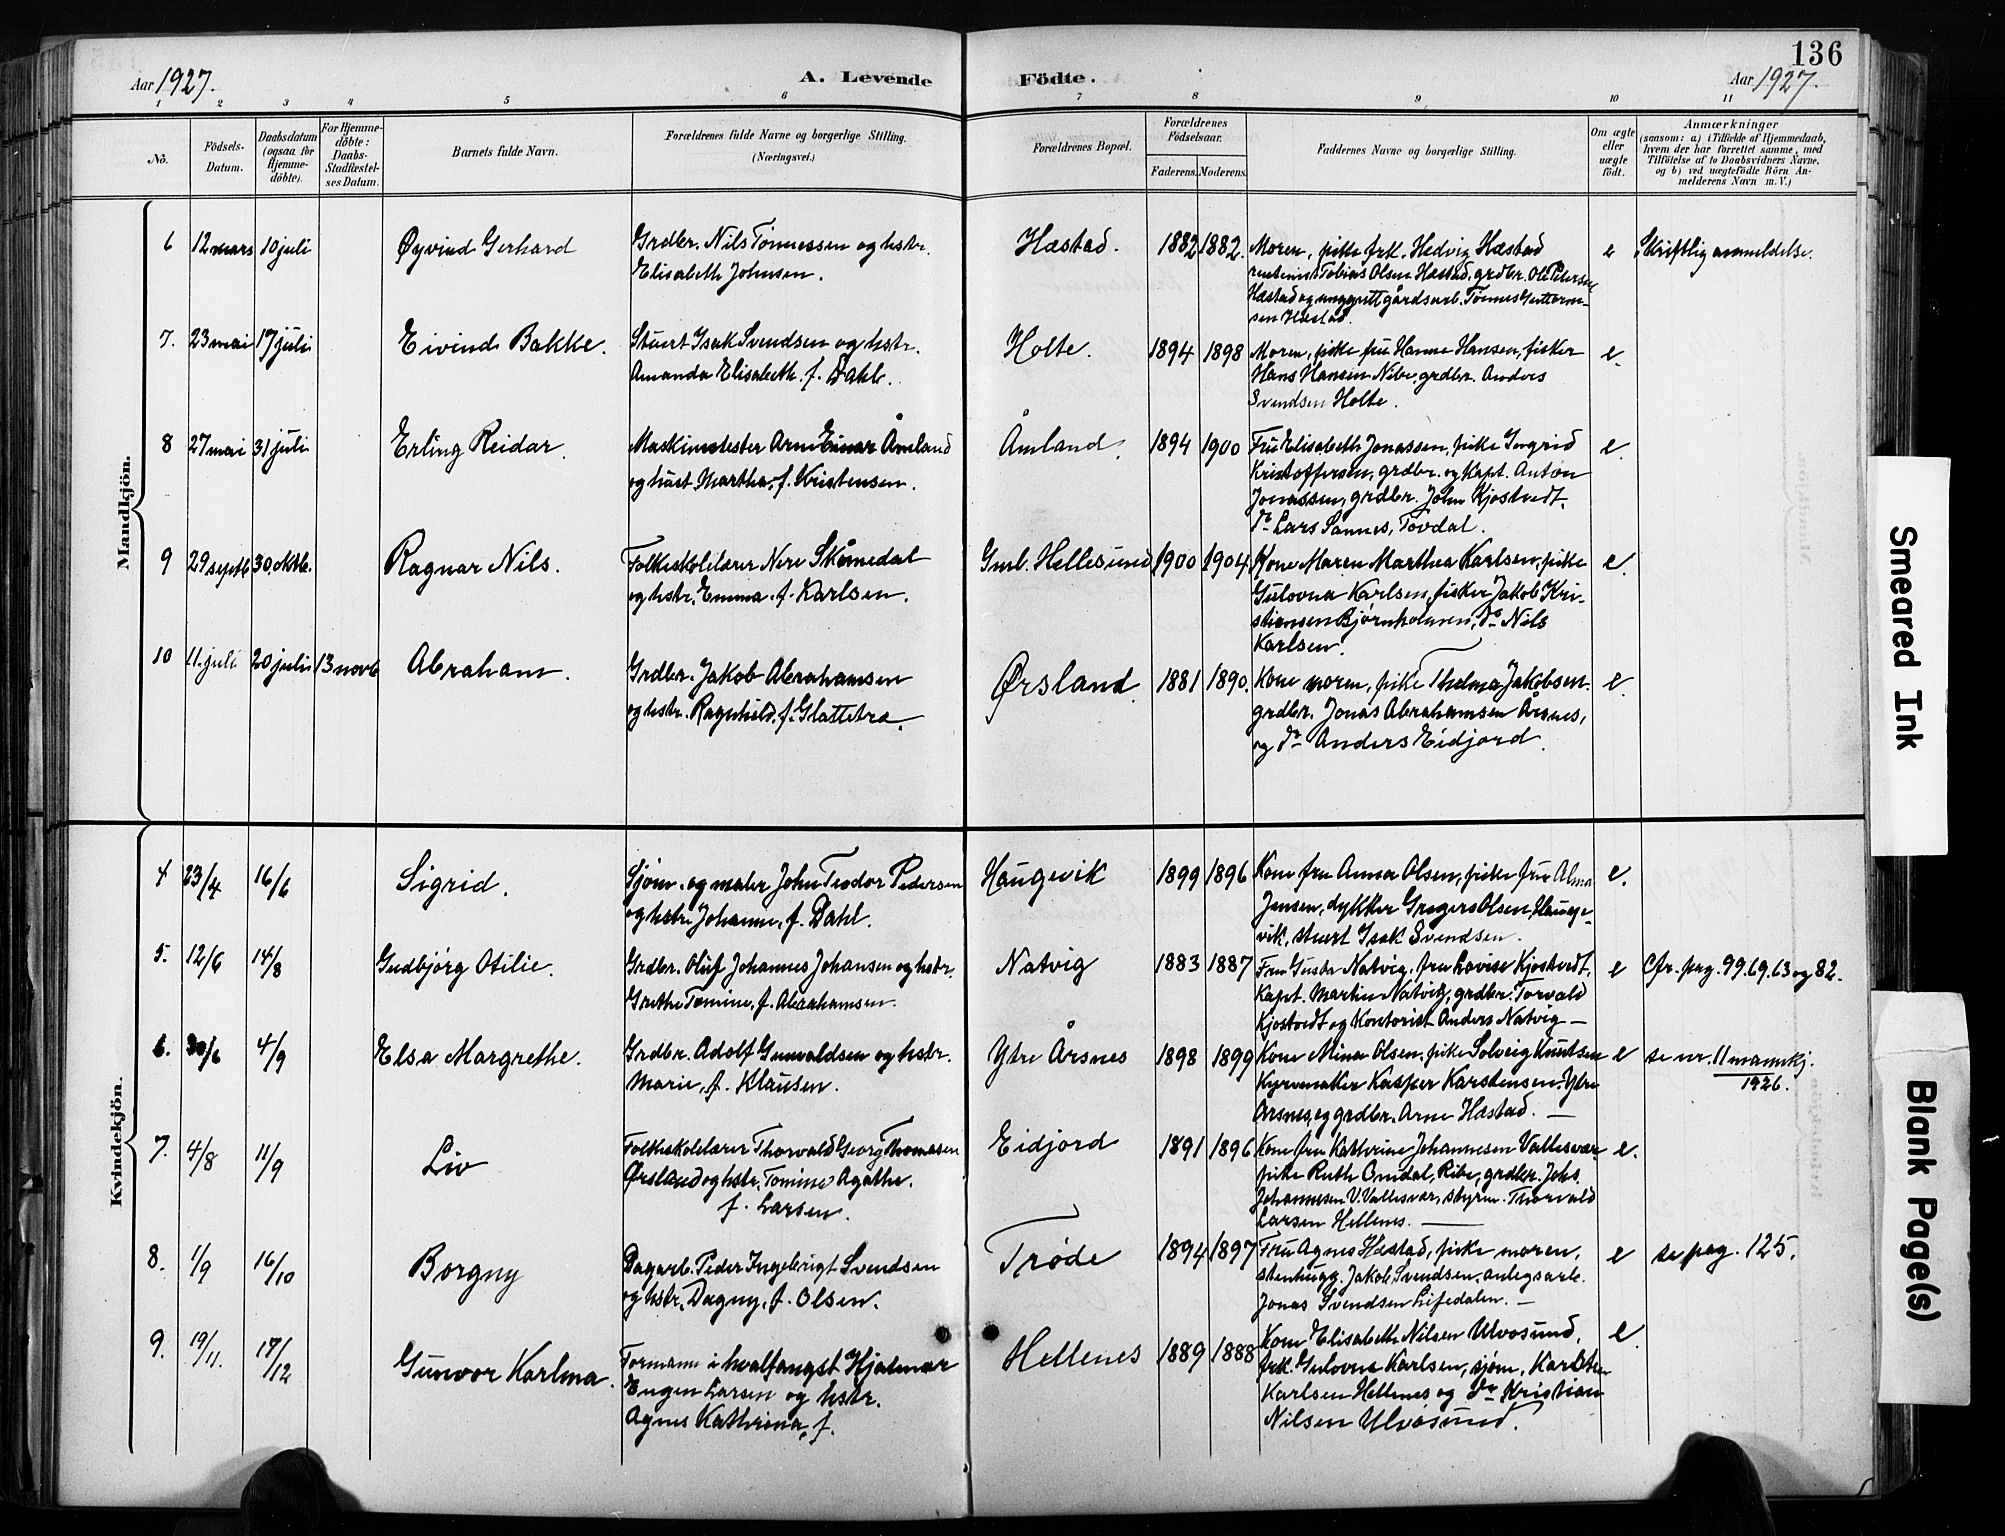 136
Aar 1927. A. Levende Födte. Aar 1927.
1 2 3 4 5 6 7 8 9 10 11
No.
Födsels-Datum.
Daabsdatum (ogsaa for Hjemme-döbte).
For Hjemme-döbte: Daabs-Stadfæstel-ses Datum.
Barnets fulde Navn.
Forældrenes fulde Navne og borgerlige Stilling.
(Næringsvei.)
Forældrenes Bopæl.
Forældrenes Födselsaar.
Faderens. Moderens.
Faddernes Navne og borgerlige Stilling.
Om ægte eller uægte födt.
Anmærkninger
(saasom: a) i Tilfælde af Hjemmedaab,
hvem der har forrettet samme, med
Tilföielse af to Daabsvidners Navne.
og b) ved uægtefödte Börn An-
melderens Navn m. V.)
Mandkjön.
6 12 mars 10 juli Øyvind Gerhard Grdbr. Nils Tønnessen og hstr. Hæstad. 1882 1882. Moren, pike frk. Hedvig Hæstad e Skriftlig anmeldelse.
Elisabeth Johnsen. Tobias Olsen Hæstad, grdbr. Ole Petersen
Hæstad og unggutt gårdsarb. Tønnes Guttorm-
sen Hæstad.
7. 23 mai 17 juli Eivind Bakke. Stuert Isak Svendsen og hstr. Holte. 1894 1898 Moren, pike fru Hanne Hansen, fisker e.
Amanda Elisabeth f. Dahl. Hans Hansen Nibe, grdbr. Anders
Svendsen Holte.
8 27 mai 31 juli Erling Reidar. Maskinmester Arne Einar Åmland Åmland. 1894 1900 Fru Elisabeth Jonassen, pike Ingrid e.
og hust. Martha, f. Kristensen. Kristoffersen, grdbr. og Kapt. Anton
Jonassen, grdbr. John Kjostvedt,
do Lars Sannes, Tovdal.
9 29 septb 30. oktb. Ragnar Nils. Folkeskolelærer Nere Skåmedal Gml. Hellesund 1900 1904 Kone Maren Marthea Karlsen, pike e.
og hstr. Emma f. Karlsen. Gulovna Karlsen, fisker Jakob Kri-
stiansen Bjørnholmen, do Nils
Karlsen.
10 11. juli 20 juli 13 novb Abraham. Grdbr. Jakob Abrahamsen Ørsland. 1881 1890. Kone moren, pike Thelma Jakobsen. e.
og hstr. Ragnhild, f. Glattetra. grdbr. Jonas Abrahamsen Årsnes,
og do Anders Eidjord.
Kvindekjön.
4 23/4 16/6 Sigrid. Sjøm. og maler John Teodor Pedersen Haugevik 1899 1896 Kone fru Anna Olsen, pike fru Alma e.
og hstr. Johanne, f. Dahl. Jensen, dykker Gregers Olsen, Hauge-
vik, stuert Isak Svendsen.
5. 12/6 14/8 Gudbjørg Otilie. Grdbr. Oluf Johannes Johansen og hstr. Natvig 1883 1887 Fru Gusta Natvig, fru Lovise Kjostvedt, e Cfr. pag. 99. 69. 63 og 82.
Grethe Tomine, f. Abrahamsen. Kapt. Martin Natvig, grdbr. Torvald
Kjostvedt og Kontorist Anders Natvig —
6. 20/6 4/9 Elsa Margrethe. Grdbr. Adolf Gunvaldsen og hstr. Ytre Årsnes 1898 1899 Kone Mina Olsen, pike Solveig Knutsen e se nr. 11 mannkj.
Marie, f. Klausen. Kurvmaker Kasper Karstensen, Ytre 1926.
Årsnes, og grdbr. Arne Hæstad. —
7. 4/8 11/9 Liv Folkeskolelærer Thorvald Georg Thomasen Eidjord 1891 1896 Kone fru Kathrine Johannesen Vallesvær e.
Ørsland og hstr. Tomine Agathe. pike Ruth Omdal, Ribe, grdbr. Johs.
f. Larsen. Johannesen V. Vallesvær, styrm. Thorvald
Larsen Hellenes. —
8. 1/9 16/10 Borgny Dagarb. Peder Ingebrigt Svendsen Trøde 1894 1897 Fru Agnes Hæstad, pike moren, e se pag. 125.
og hstr. Dagny, f. Olsen. stenhugg. Jakob Svendsen, anlegsarb.
Jonas Svendsen Lifjedalen. —
9. 19/11. 17/12 Gunvor Karlma. Formann i hvalfangst Hjalmar Hellenes 1889 1888 Kone Elisabeth Nilsen Ulvøsund, e
Eugen Larsen og hstr. frk. Gulovna Karlsen, sjøm. Karsten
Agnes Kathrina, f. Karlsen Hellenes og do Kristian
Nilsen Ulvøsund.
Smeared Ink
Blank Page(s)